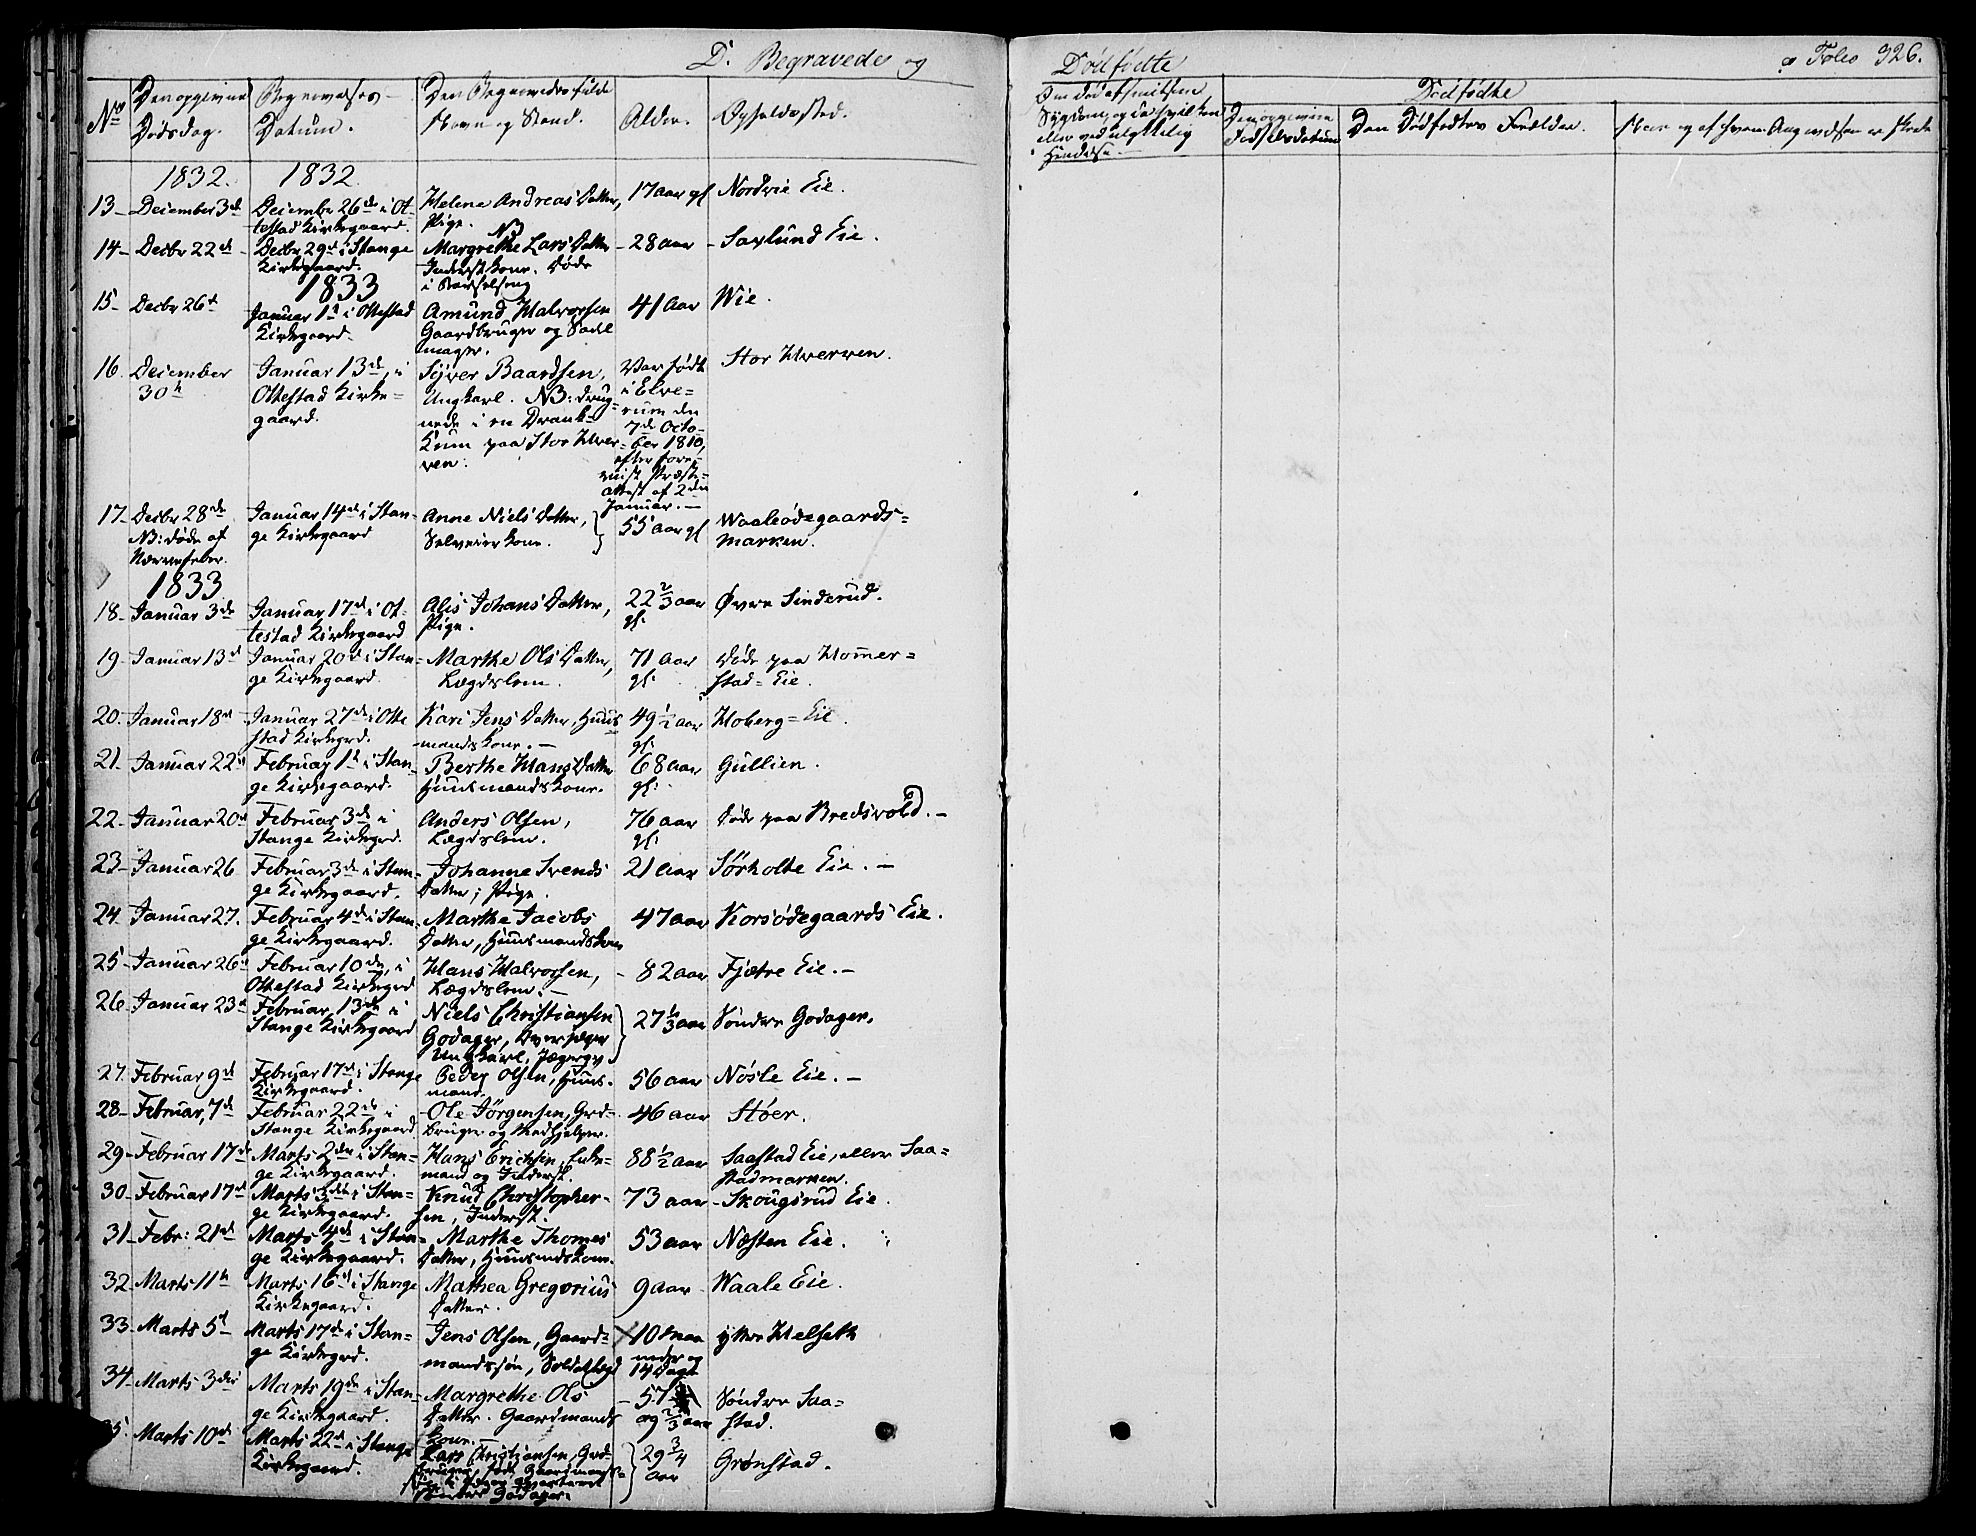 D. Begravede og
Dødfødte
a Folio 326.
No
Den opgivne Dødsdag.
Begravelses-Datum.
Den Begravedes fulde Navn og Stand.
Alder.
Opholdssted.
Dødfødte
Den Dødfødtes Forældre.
1832. 1832.
13 - December 3de December 26de i Ottestad Kirkegaard. Helene Andreas Datter, Pige. 17 aar gl Nordvie Eie.
14 - Decbr 22de - Decbr 29de i Stange Kirkegaard. NB Margrethe Lars Datter Inderst Kone. Døde i Barselseng - 28 aar - Saxlund Eie.
1833
15 - Decbr 26de Januar 1ste i Ottestad Kirkegaard. Amund Halvorsen Gaardbruger og Sadelmager. 41 Aar Wie.
16. December 30te Januar 13de, i Ottestad Kirkegaard. Syver Baardsen, Ungkarl. NB: druknede i en Brank-Kum paa Stor Hverven. Var født i Elverum den 7de October 1810, efter forevist Præste-attest af 2den Januar. - Stor Hverven.
17 - Decbr 28de NB: døde af Nervefeber. Januar 14de i Stange Kirkegaard Anne Niels Datter, Selveier Kone. 55 aar gl Waaleødegaards-marken.
1833
18 - Januar 3de Januar 17de i Ottestad Kirkegaard Alis Johans Datter, Pige. 22 2/3 aar gl. Øvre Sinderud.
19 - Januar 13de Januar 20de i Stange Kirkegaard. Marthe Ols Datter, Lægdslem. 71 aar gl. Døde paa Hommerstad-Eie.
20. Januar 18de Januar 27de i Ottestad Kirkegrd. Kari Jens Datter, Huusmandskone. - 49 1/2 aar gl. Hoberg-Eie.
21 - Januar 22de Februar 1ste i Stange Kirkegaard. Berthe Hans Datter Huusmandskone. 68 aar gl. Gullien.
22 - Januar 20de Februar 3de i Stange Kirkegrd. Anders Olsen, Lægdslem. 76 aar gl. Døde paa Bredsvold. -
23 - Januar 26 Februar 3de i Stange Kirkegaard. Johanne Svends Datter, Pige. 21 Aar Sørholte Eie. -
24. Januar 27. Februar 4de i Stange Kirkegaard. Marthe Jacobs Datter, Huusmandskone 47 aar Korsødegaards Eie.
25 - Januar 26de Februar 10de, i Ottestad Kirkegrd Hans Halvorsen, Lægdslem. - 82 aar Fjætre Eie. -
26. Januar 23de Februar, 13de i Stange Kirkegaard Niels Christiansen Godager, Ungkarl, 27 1/3 aar Søndre Godager.
27. Februar 9de Februar 17de i Stange Kirkegaard. Peder Olsen, Huusmand. 56 aar Nøsle Eie. -
28 - Februar, 7de Februar 22de i Stange Kirkegaard Ole Jørgensen, Grdbruger og Medhjelper. 46 aar Støer.
29 - Februar 17de Marts 2den i Stange Kirkegaard. Hans Erichsen, Enkemand og Inderst. 88 1/2 aar Saastad Eie, eller Saastadmarken.
30 - Februar 17de Marts 3die i Stange Kirkegaard. Knud Christophersen, Inderst. 73 aar - Skougsrud Eie.
31 - Febr: 21de Marts 4de i Stange Kirkegaard. Marthe Thomes Datter, Huusmdskone. 53 aar Næsten Eie.
32. Marts 11te Marts 16de i Stange Kirkegaard. Mathea Gregorius Datter. 9 aar - Waale Eie.
33. Marts 5te Marts 17de i Stange Kirkegrd. Jens Olsen, Gaardmandssøn, 10 Maaneder og 14 Dage ytre Helseth
34 - Marts 3die Marts 19de i Stange Kirkegaard. Margrethe Ols Datter. Gaardmands Kone. - 57 og 2/3 aar Søndre Saastad.
35. Marts 10de Marts 22de i Stange Kirkegaard. Lars Christiansen, Grdbruger, 29 3/4 aar Grønstad.